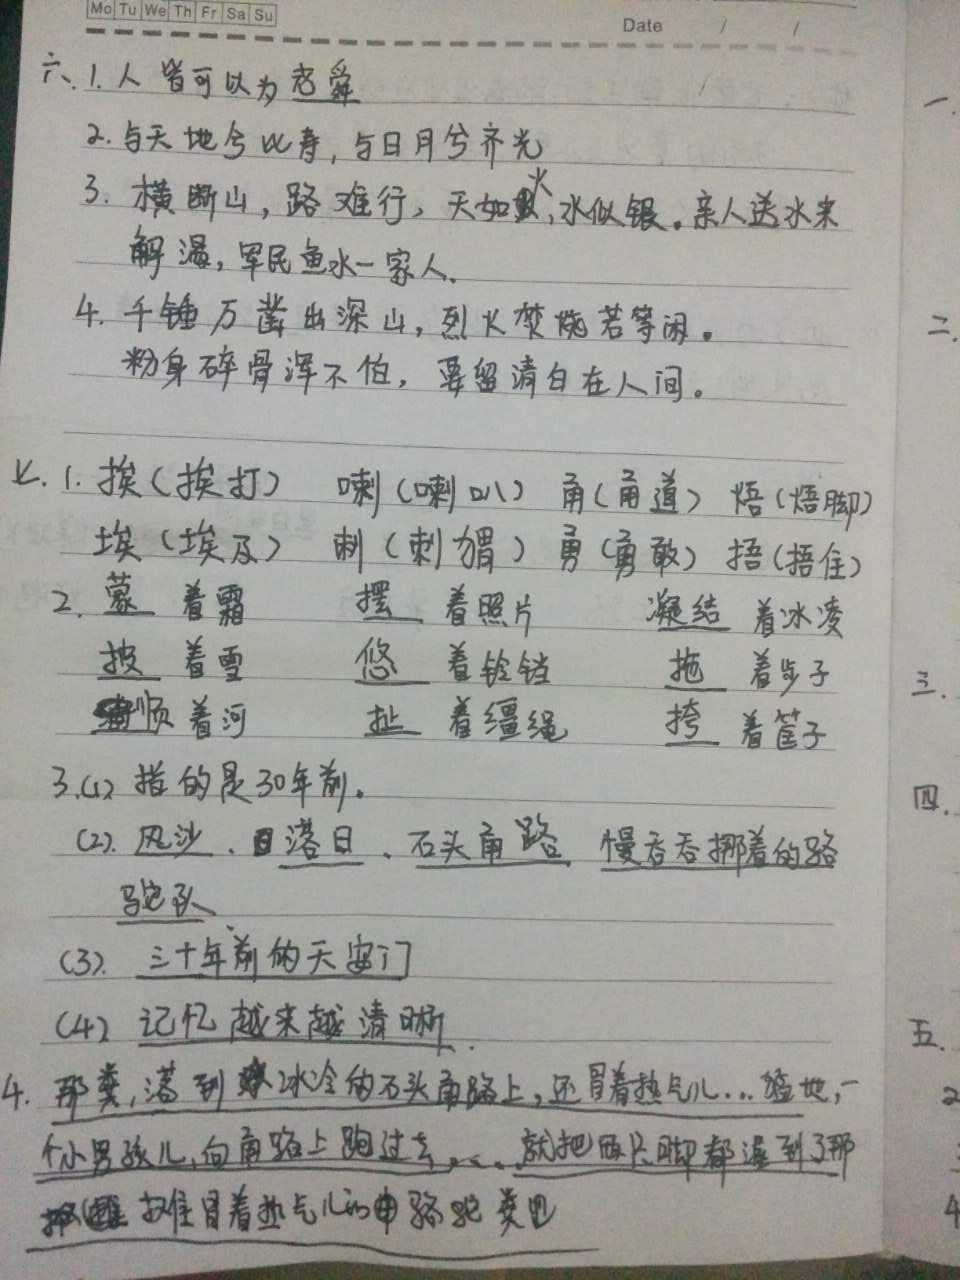 Mo Tu We Th Fr Sa Su
Date / /
六、1. 人皆可以为尧舜
2. 与天地兮比寿，与日月兮齐光
3. 横断山，路难行，天如火，水似银。亲人送水来
解渴，军民鱼水一家人.
4. 千锤万凿出深山，烈火焚烧若等闲。
粉身碎骨浑不怕，要留清白在人间。
七. 1. 挨（挨打） 喇（喇叭） 甬（甬道） 焐（焐脚）
埃（埃及） 刺（刺猬） 勇（勇敢） 捂（捂住）
2. 蒙 着霜 摆 着照片 凝结 着冰凌
披 着雪 悠 着铃铛 拖 着步子
顺 着河 扯 着缰绳 挎 着筐子
3.(1) 指的是30年前。
(2). 风沙、落日、石头甬路 慢吞吞挪着的骆
驼队
(3). 三十年前的天安门
(4) 记忆越来越清晰.
4. 那粪，落到冰冷的石头甬路上，还冒着热气儿...猛地，一
个小男孩儿，向甬路上跑过去......就把两只脚都温到了那
还冒着热气儿的 骆驼粪里
一.
二.
三.
四.
五.
2
4